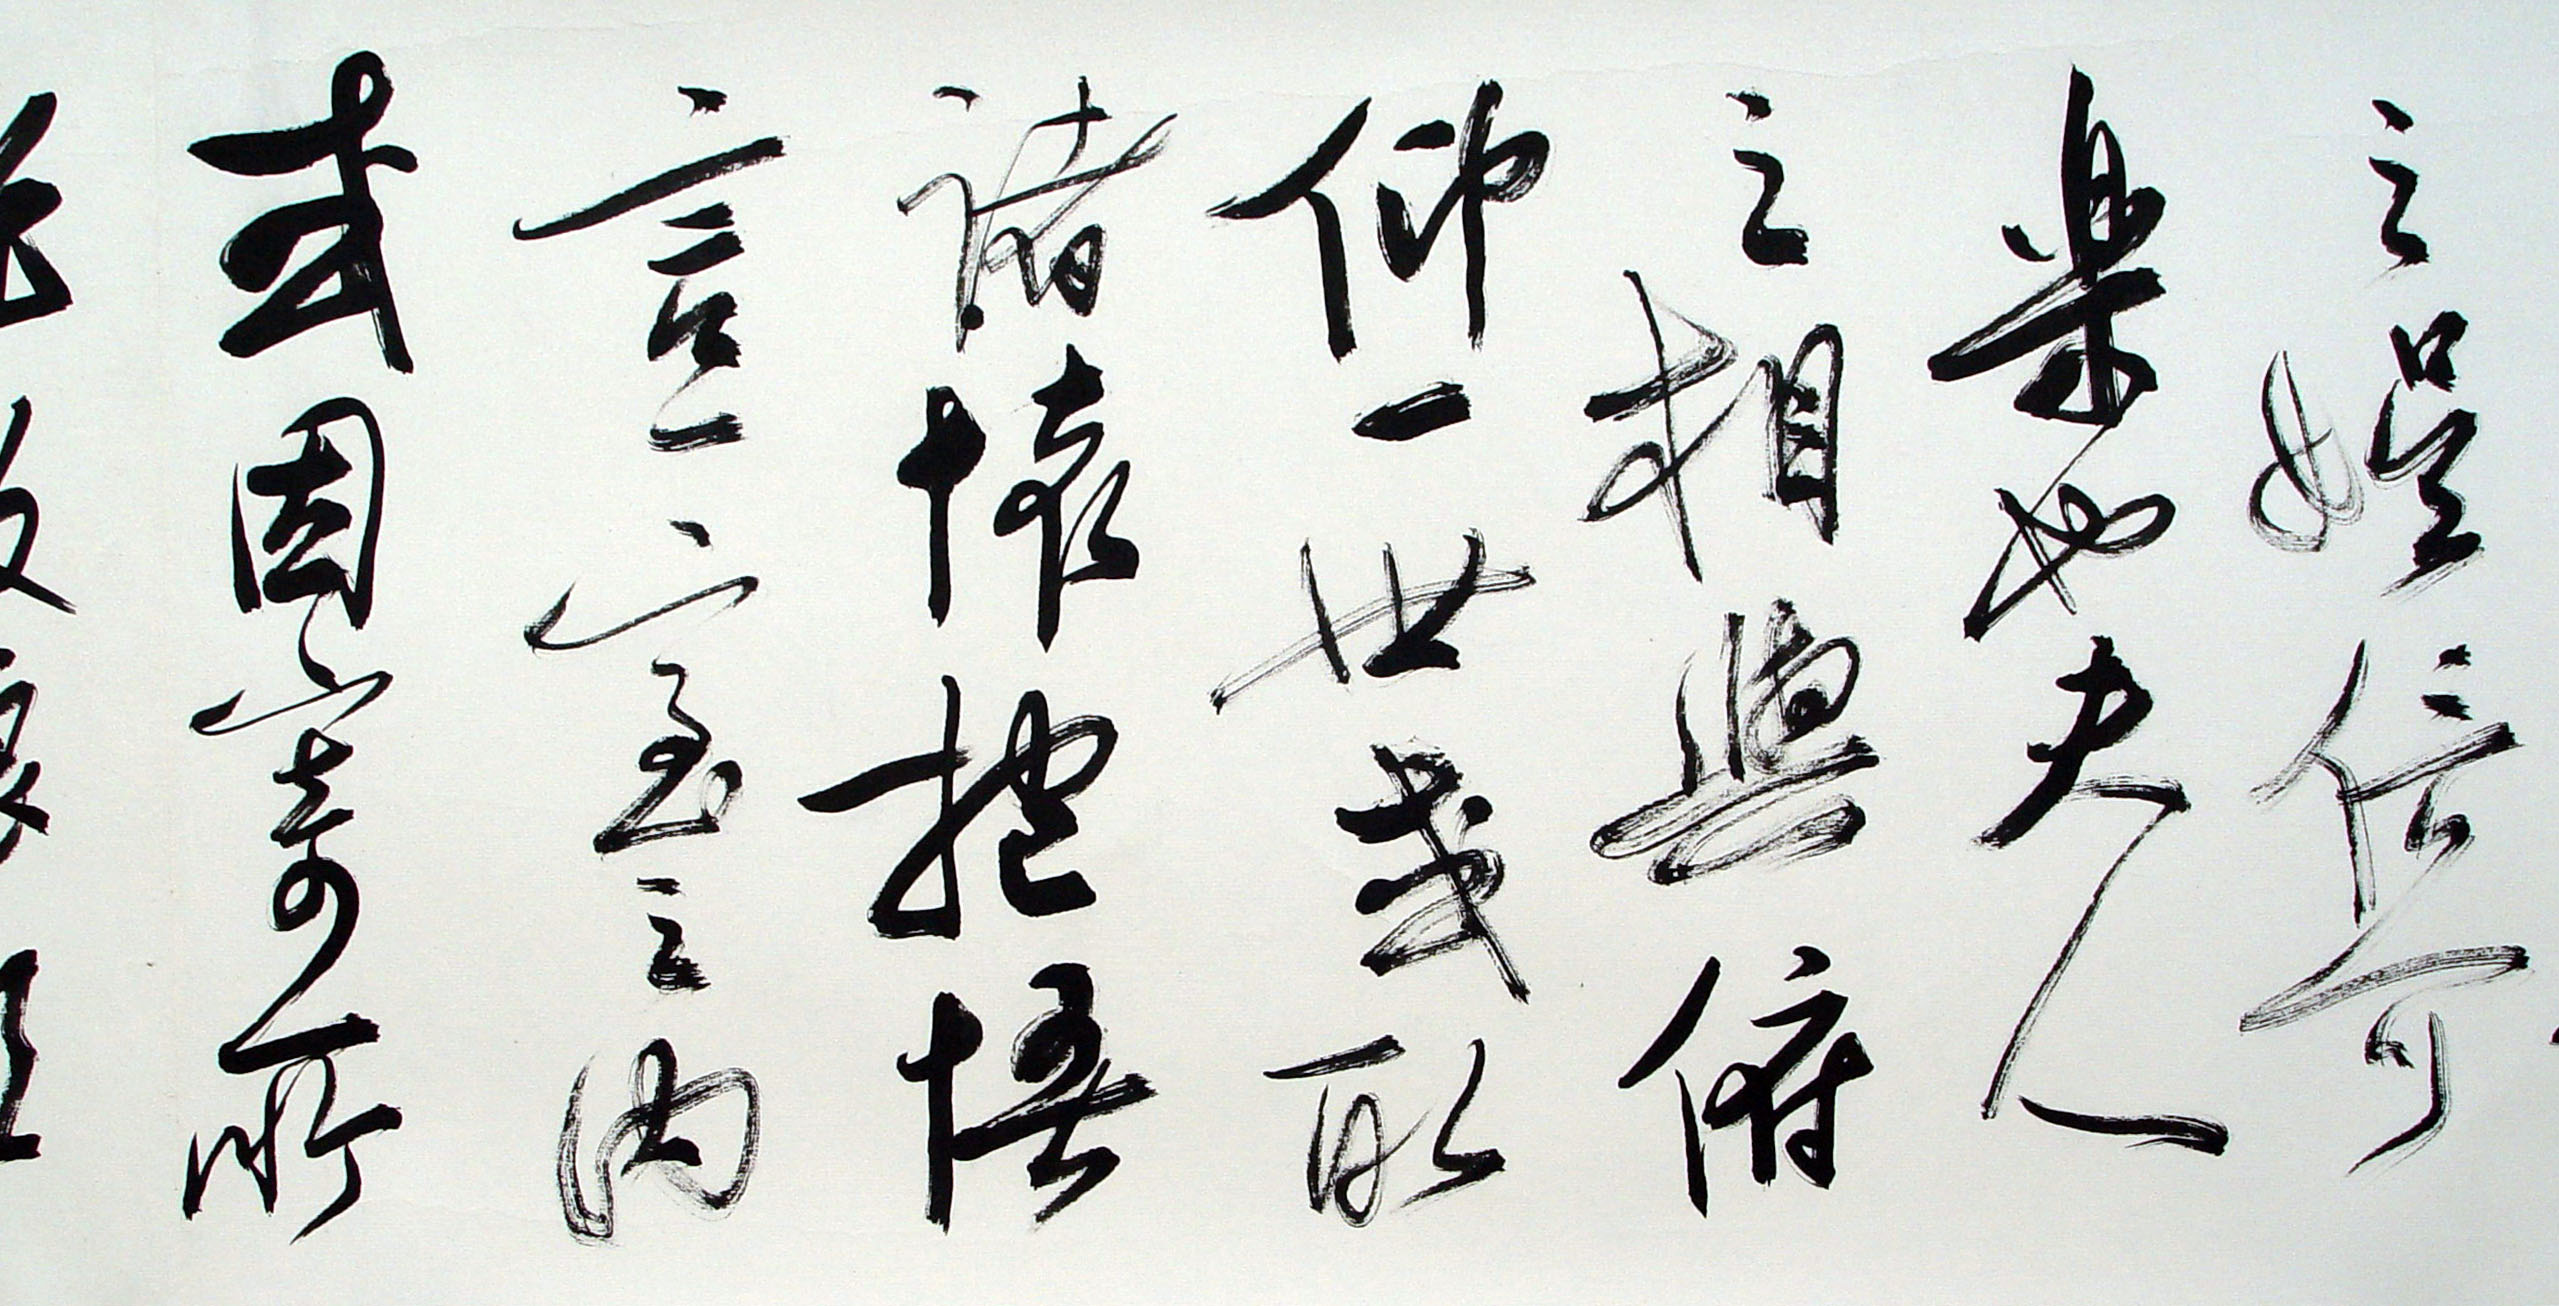 之娛信可
樂也夫人
之相與俯
仰一世或取
諸懷抱悟
言一室之內
或因寄所